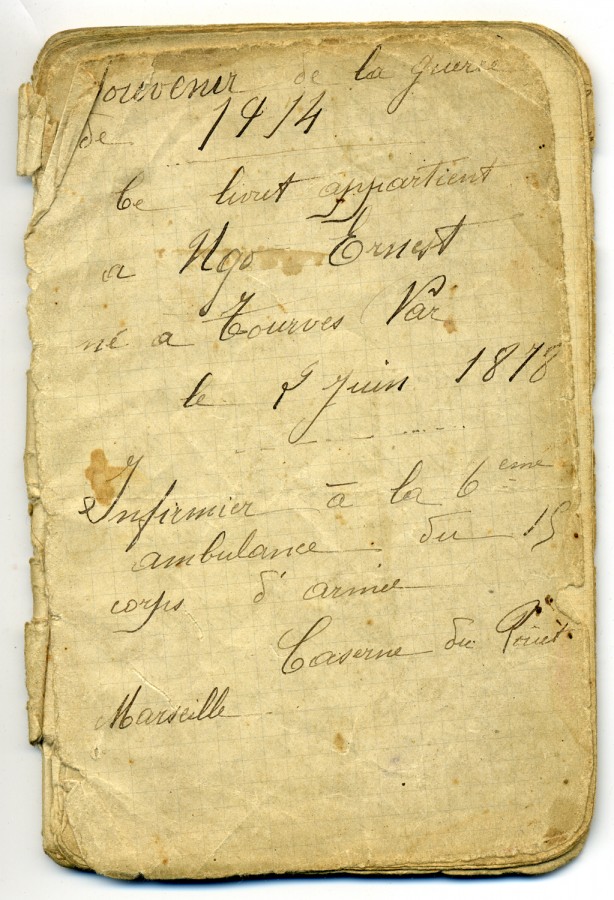 Souvenir de la guerre
de 1914
Ce livret appartient
a Ugo Ernest
né a Tourves Var
le 5 Juin 1878
Infirmier à la 6eme
ambulance du 15
corps d'armée
Caserne du
Marseille